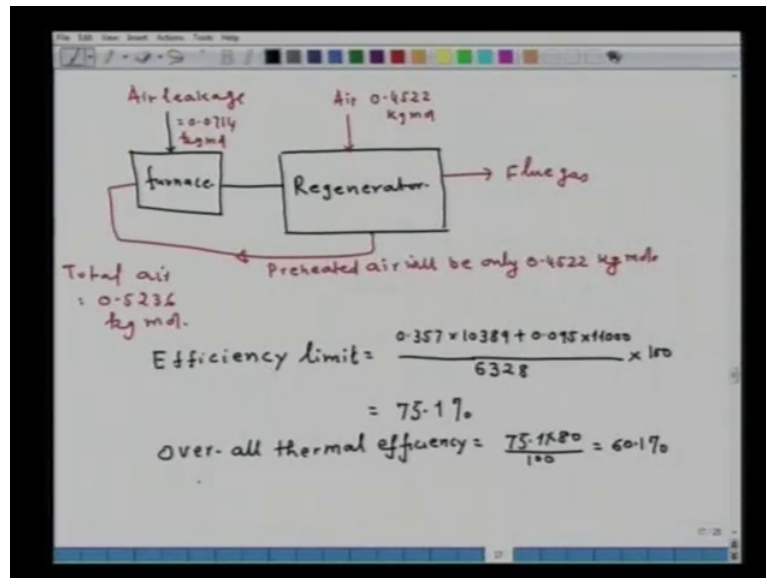 File Edit View Insert Actions Tools Help
Air leakage
= 0.0714
kg mol
Air 0.4522
kg mol
furnace
Regenerator
Flue gas
Preheated air will be only 0.4522 kg mole
Total air
= 0.5236
kg mol.
Efficiency limit = 0.357 x 10389 + 0.095 x 11000 / 6328 x 100
= 75.1 %
Over-all thermal efficiency = 75.1 x 80 / 100 = 60.1 %
17